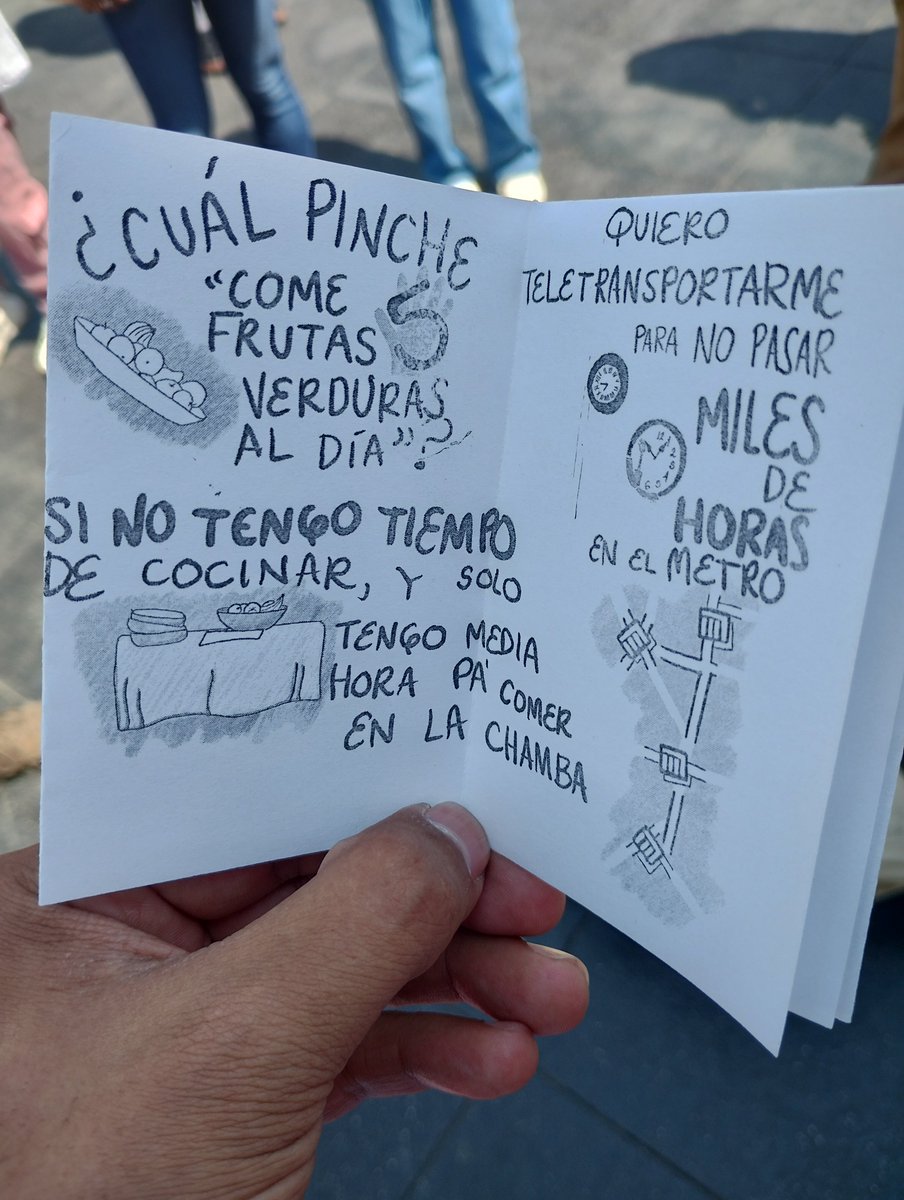 ¿CUÁL PINCHE
"COME 5
FRUTAS
VERDURAS
AL DÍA"?
SI NO TENGO TIEMPO
DE COCINAR, Y SOLO
TENGO MEDIA
HORA PA' COMER
EN LA CHAMBA
QUIERO
TELETRANSPORTARME
PARA NO PASAR
MILES
DE
HORAS
EN EL METRO